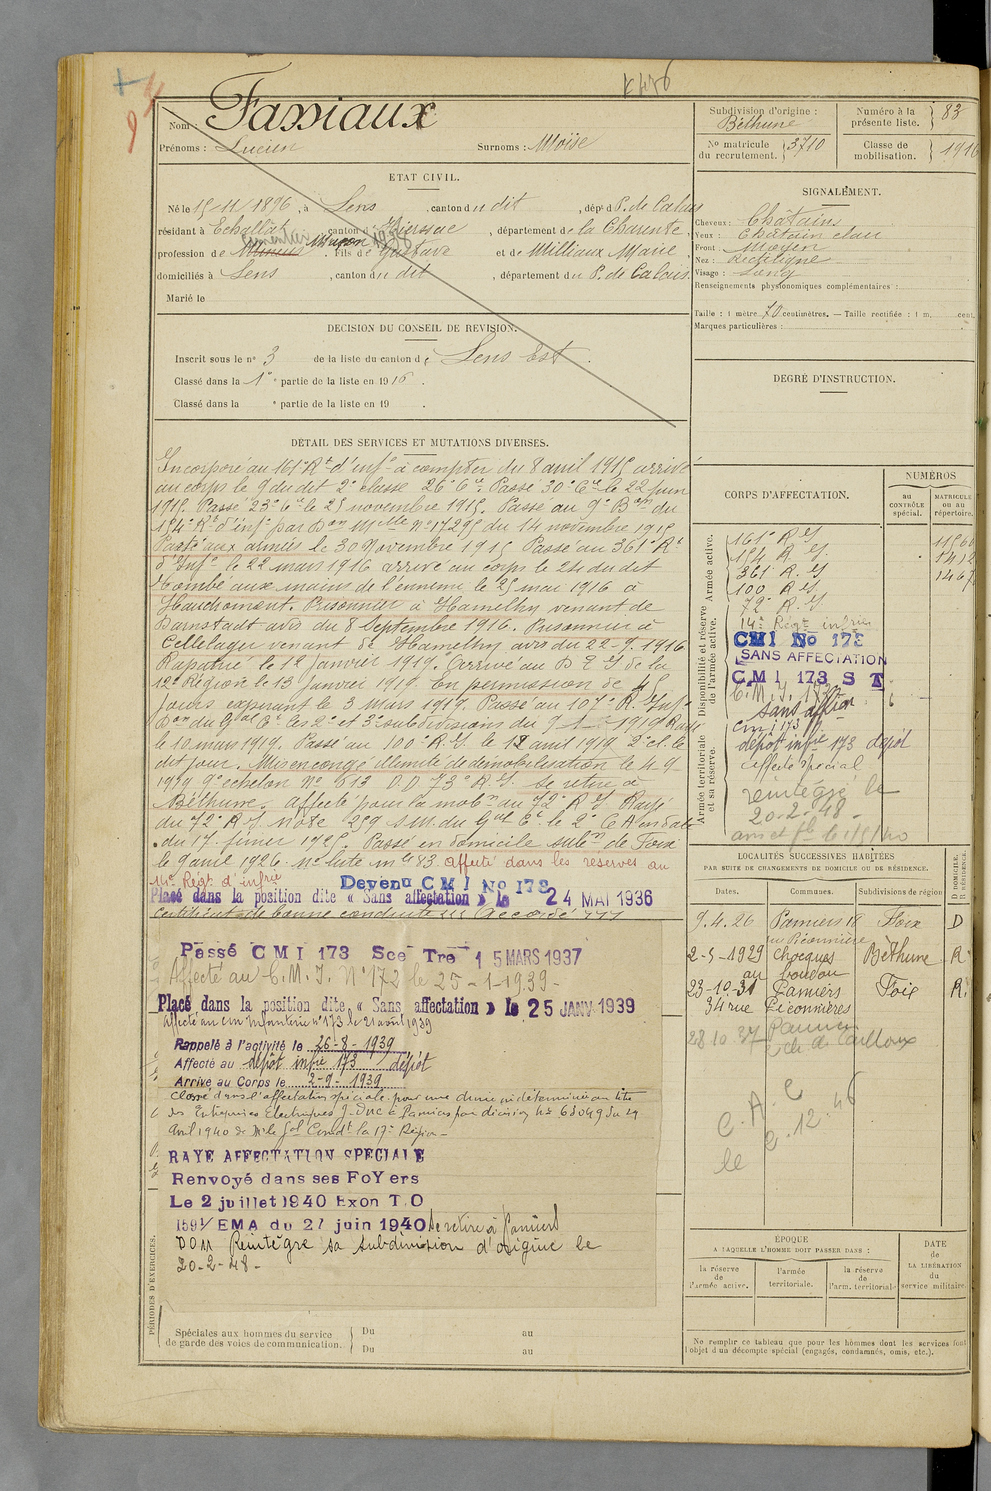 Nom : Fassiaux
Prénoms : Lucien Surnoms : Moïse
ETAT CIVIL.
Né le 15-11-1896, à Lens, canton du dit, dépt d P. de Calais
résidant à Echallat, canton d Hiersac, département de la Charente,
profession de Mineur Maçon. Fils de Gustave et de Milliaux Marie,
domiciliés à Lens, canton du dit, département du P. de Calais.
Marié le
DÉCISION DU CONSEIL DE REVISION.
Inscrit sous le n° 3 de la liste du canton de Lens Est.
Classé dans la 1e partie de la liste en 1916.
Classé dans la e partie de la liste en 19 .
DÉTAIL DES SERVICES ET MUTATIONS DIVERSES.
Incorporé au 161e Rt d'infie à compter du 8 avril 1915 arrivé
au corps le 9 du dit 2e classe 26e Cie. Passé 30e Cie le 22 juin
1915. Passé 23e Cie le 25 novembre 1915. Passé au 9e Bon du
154e Rt d'infie par Don Mlle N° 17295 du 14 novembre 1915
Parti aux armées le 30 Novembre 1915 Passé au 361e Rt
d'Infie le 22 mars 1916 arrivé au corps le 24 du dit
Tombé aux mains de l'ennemi le 25 mai 1916 à
Haudromont. Prisonnier à Hamelhy venant de
Darmstadt avis du 8 Septembre 1916. Prisonnier à
Cellelager venant de Hamelhy avis du 22-9-1916
Rapatrié le 12 Janvier 1919. Arrivé au D. E. I de la
12e Région le 13 Janvier 1919. En permission de 45
jours expirant le 3 Mars 1919. Passé au 107e R. Infie
Don du Gal Ct les 2e et 3e subdivisions du 1919
le 10 mars 1919. Passé au 100e R.I. le 12 avril 1919. 2e cl. le
dit jour. Mis en congé illimité de démobilisation le 4-9
1919 9e échelon N° 613 D.D 73e R.I. Se retire à
Béthune. Affecté pour la mobon au 72e R I
du 72e R I note 259 S.M. du Gal Ct le 2e C A en date
du 17 février 1925. Passé en domicile subon de Foix
le 9 avril 1926. n° liste mle 83. affecté dans les reserves au
14e Régt d'infrie
Devenu CMI No 173
Placé dans la position dite « Sans affectation » le 24 MAI 1936
Certificat de bonne conduite Accordé
Passé CMI 173 Sce Tre 15 MARS 1937
Affecté au C.M.I. N° 172 le 25-1-1939-
Placé dans la position dite « Sans affectation » le 25 JANV 1939
Affecté au cm Infanterie n° 173 le 21 août 1939
Rappelé à l'activité le 26-8-1939
Affecté au dépôt infie 173 dépôt
Arrivé au Corps le 2-9-1939
Classé dans l'affectation spéciale pour une durée indéterminée au titre
des Entreprises Electriques J. Duc à Pamiers par décision n° 63049 du 29
Avril 1940 de Mr le Gal Comdt la 17e Région-
RAYE AFFECTATION SPECIALE
Renvoyé dans ses FoYers
Le 2 juillet 1940 Exon T.O
1591/EMA du 27 juin 1940 Se retire à Pamiers
DOM Réintégré sa subdivision d'origine le
20-2-48-
PÉRIODES D'EXERCICES.
Spéciales aux hommes du service
de garde des voies de communication.
Du au
Du au
Subdivision d'origine : Béthune
Numéro à la présente liste. 83
No matricule du recrutement. 3710
Classe de mobilisation. 1916
SIGNALEMENT.
Cheveux : Châtains
Yeux : Châtain clair
Front : Moyen
Nez : Rectiligne
Visage : Long
Renseignements physionomiques complémentaires :
Taille : 1 mètre 70 centimètres. — Taille rectifiée : 1 m. cent.
Marques particulières :
DEGRÉ D'INSTRUCTION.
CORPS D'AFFECTATION.
NUMÉROS
au CONTRÔLE spécial.
MATRICULE ou au répertoire.
Armée active.
Disponibilité et réserve de l'armée active.
Armée territoriale et sa réserve.
161e R I
154 R I. 1412
361 R. I 1467
100 R I
72e R. I
14e Régt infrie
CMI No 173
SANS AFFECTATION
CMI 173 S T
C.M.I. 173
Sans affon
cmi 173
dépôt infie 173 dépôt
affecté spécial
réintégré le
20-2-48-
LOCALITÉS SUCCESSIVES HABITÉES
PAR SUITE DE CHANGEMENTS DE DOMICILE OU DE RÉSIDENCE.
Dates. Communes. Subdivisions de région D DOMICILE. R RÉSIDENCE.
9.4.26 Pamiers 18 Foix D
rue Piconnières
2-5-1929 Chocques Béthune R
23-10-31 Pamiers Foix R
34 rue Piconnières
28.10.37 Pamiers
C.A.C
le 2.12.46
ÉPOQUE
A LAQUELLE L'HOMME DOIT PASSER DANS :
la réserve de l'armée active.
l'armée territoriale.
la réserve de l'arm. territoriale
DATE de LA LIBÉRATION du service militaire.
Ne remplir ce tableau que pour les hommes dont les services font
l'objet d'un décompte spécial (engagés, condamnés, omis, etc.).